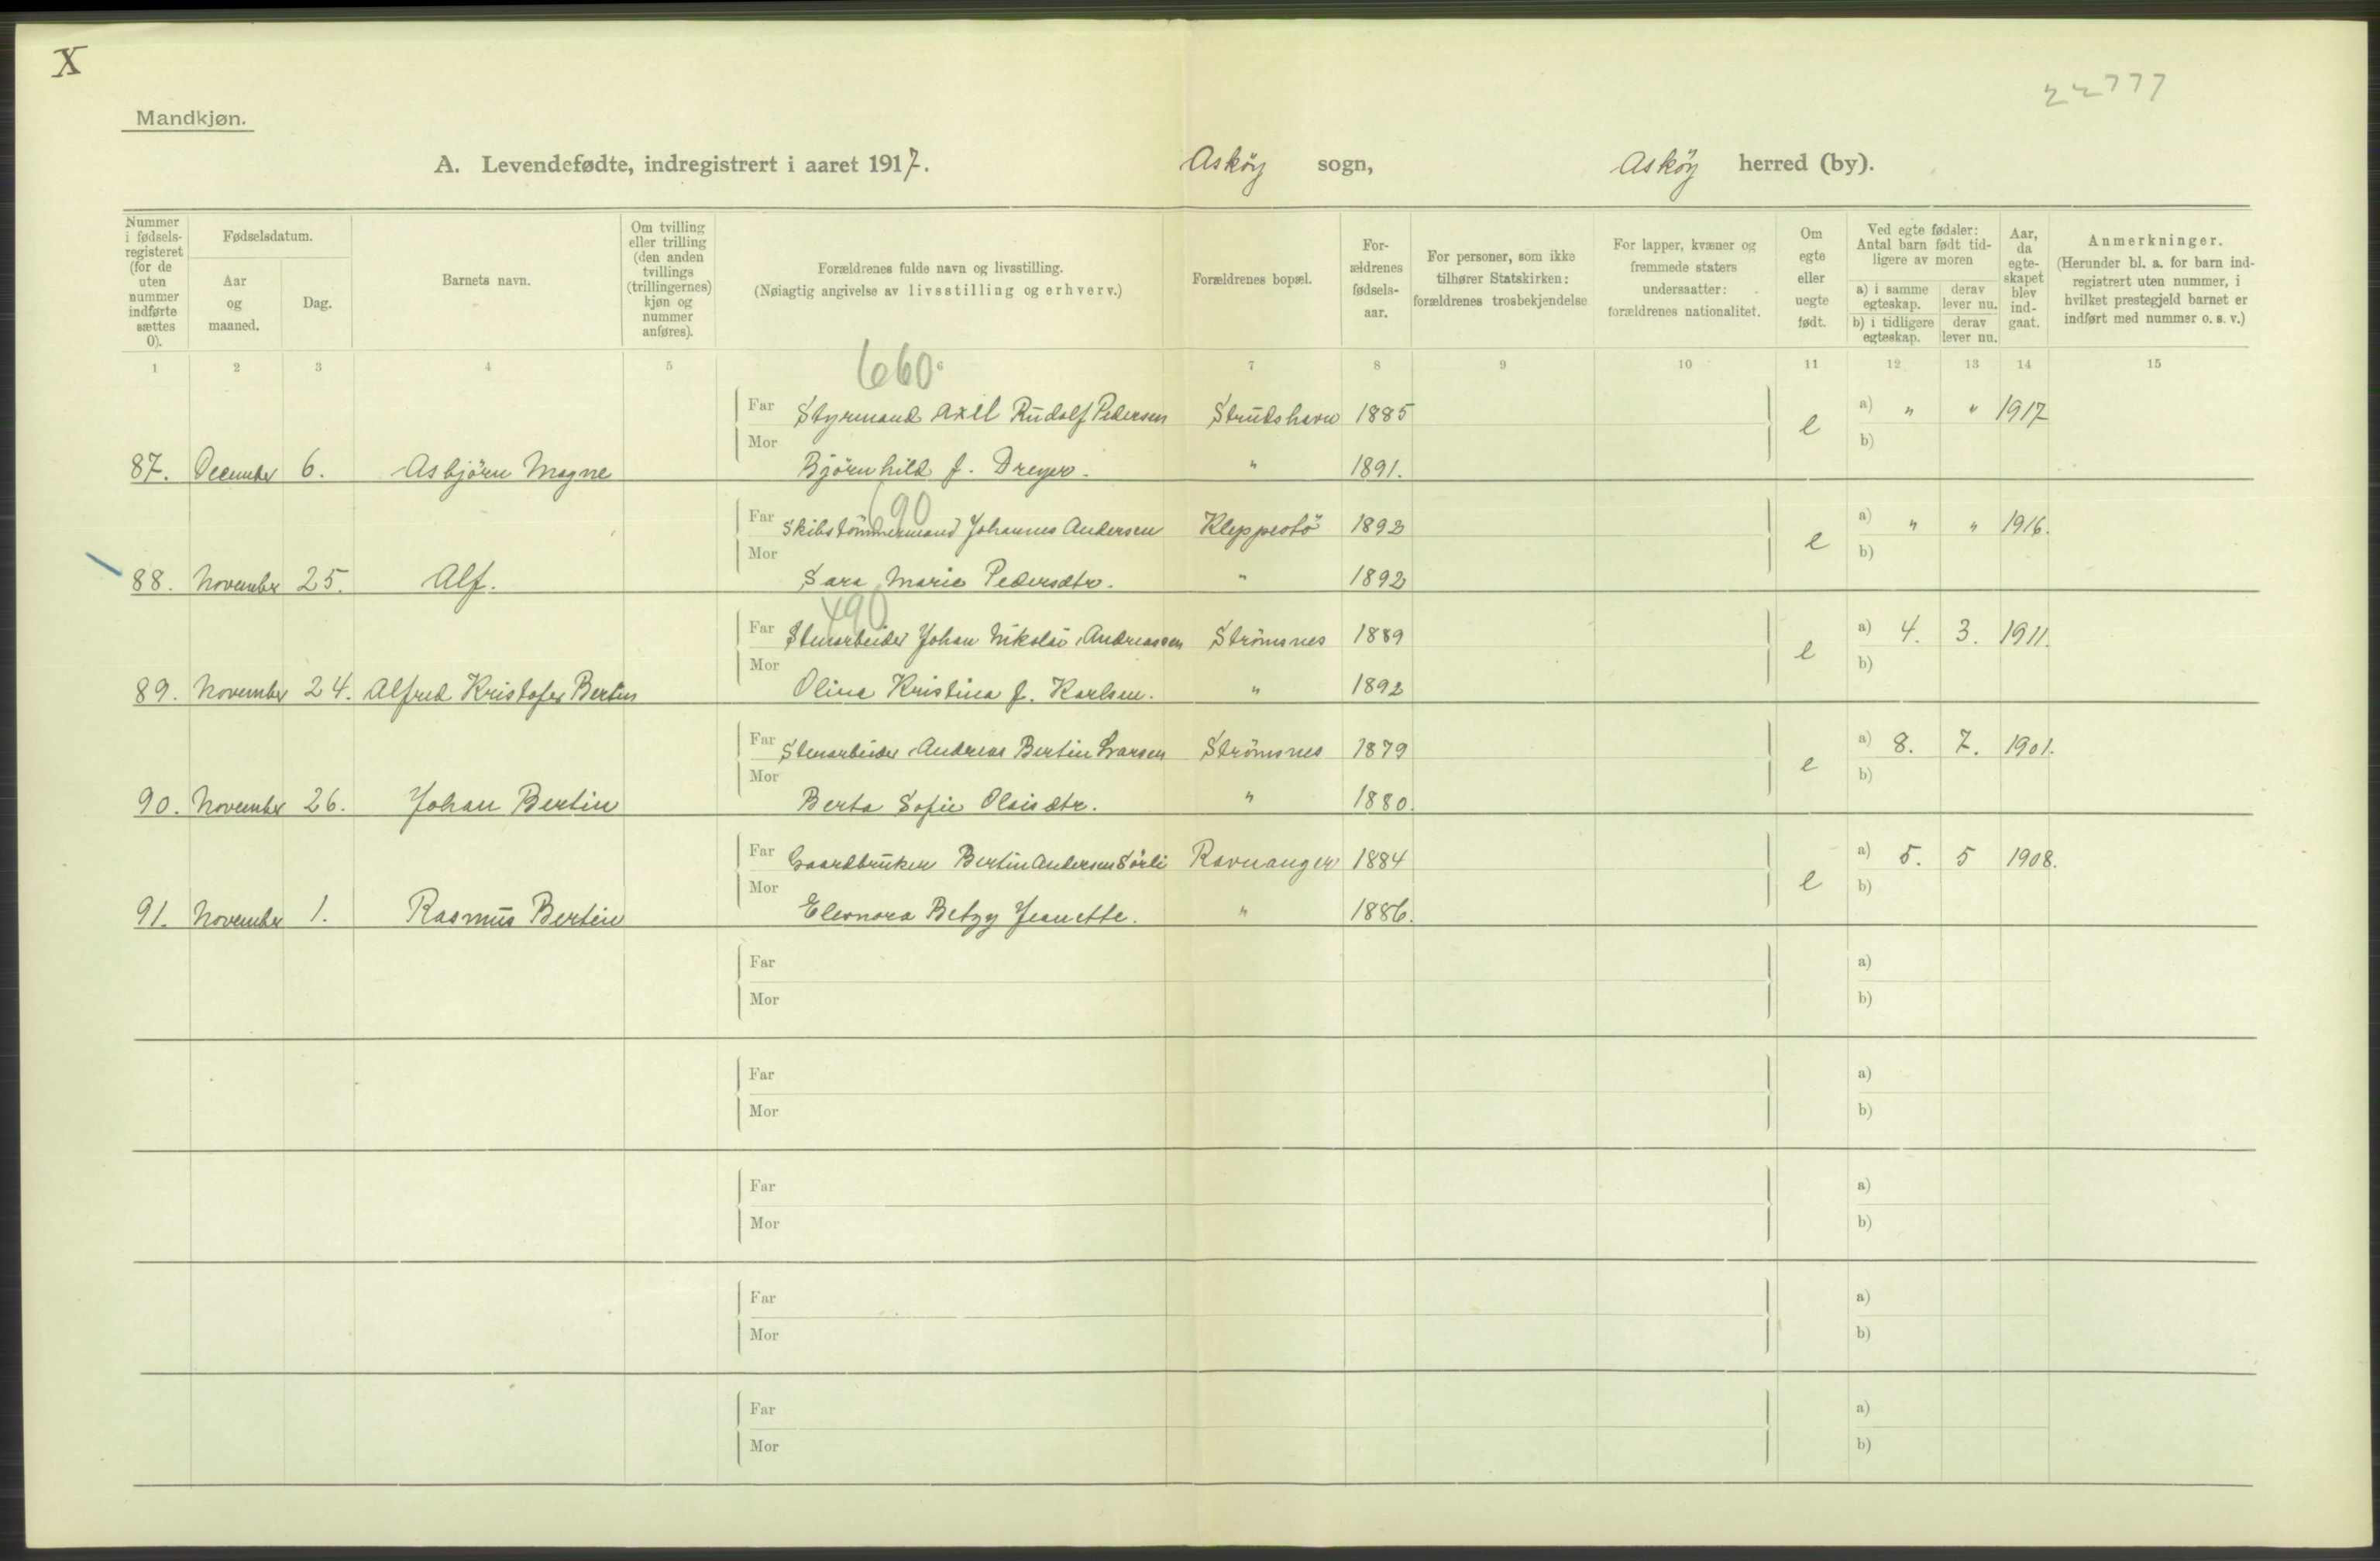 X
22777
Mandkjøn.
A. Levendefødte, indregistrert i aaret 1917. Asköy sogn, Asköy herred (by).
Nummer i fødselsregisteret (for de uten nummer indførte sættes 0).
Fødselsdatum.
Aar og maaned.
Dag.
Barnets navn.
Om tvilling eller trilling (den anden tvillings (trillingernes) kjøn og nummer anføres).
Forældrenes fulde navn og livsstilling.
(Nøiagtig angivelse av livsstilling og erhverv.)
Forældrenes bopæl.
For-ældrenes fødsels-aar.
For personer, som ikke tilhører Statskirken: forældrenes trosbekjendelse
For lapper, kvæner og fremmede staters undersaatter: forældrenes nationalitet.
Om egte eller uegte født.
Ved egte fødsler: Antal barn født tidligere av moren
a) i samme egteskap. derav lever nu.
b) i tidligere egteskap. derav lever nu.
Aar, da egte-skapet blev ind-gaat.
Anmerkninger.
(Herunder bl. a. for barn indregistrert uten nummer, i hvilket prestegjeld barnet er indført med nummer o. s. v.)
1 2 3 4 5 6 7 8 9 10 11 12 13 14 15
660
Far Styrmand Axel Rudolf Pedersen Strudshavn 1885 e a) " " 1917
87. December 6. Asbjörn Magne Mor Björnhild f. Dreyer. " 1891. b)
690
Far Skibstömmermand Johannes Andersen Kleppestö 1892 e a) " " 1916.
88. November 25. Alf. Mor Sara Marie Pedersdtr. " 1892 b)
490
Far Stenarbeider Johan Nikolai Andreassen Strömsnes 1889 e a) 4. 3. 1911.
89. November 24. Alfred Kristofer Bertin Mor Olina Kristina f. Karlsen. " 1892 b)
Far Stenarbeider Andreas Bertin Larsen Strömsnes 1879 e a) 8. 7. 1901.
90. November 26. Johan Bertin Mor Berta Sofie Olaisdtr. " 1880. b)
Far Gaardbruker Bertin Andersen Sörli Ravnanger 1884 e a) 5. 5 1908.
91. November 1. Rasmus Bertin Mor Eleonora Betzy Jeanette. " 1886. b)
Far a)
Mor b)
Far a)
Mor b)
Far a)
Mor b)
Far a)
Mor b)
Far a)
Mor b)